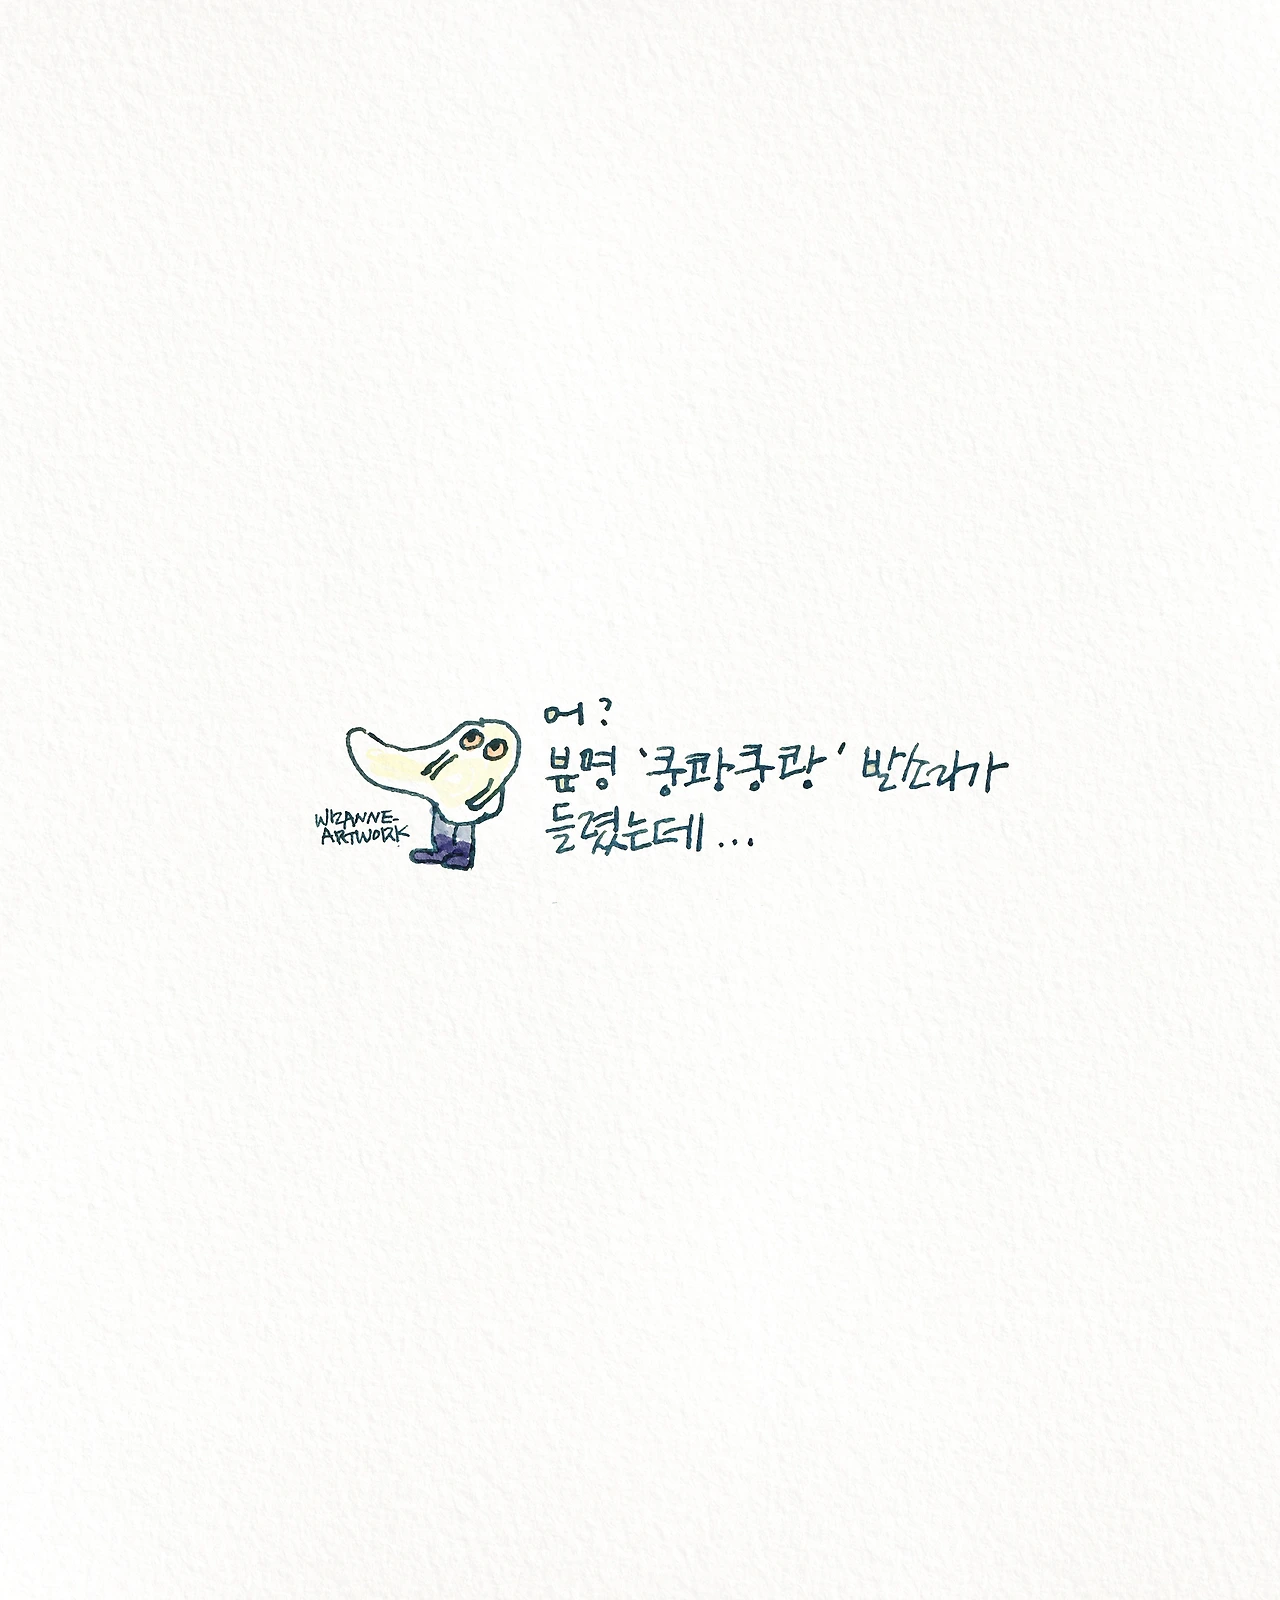 어?
분명 '쿵쾅쿵쾅' 발소리가
들렸는데...
WIZANNE-
ARTWORK